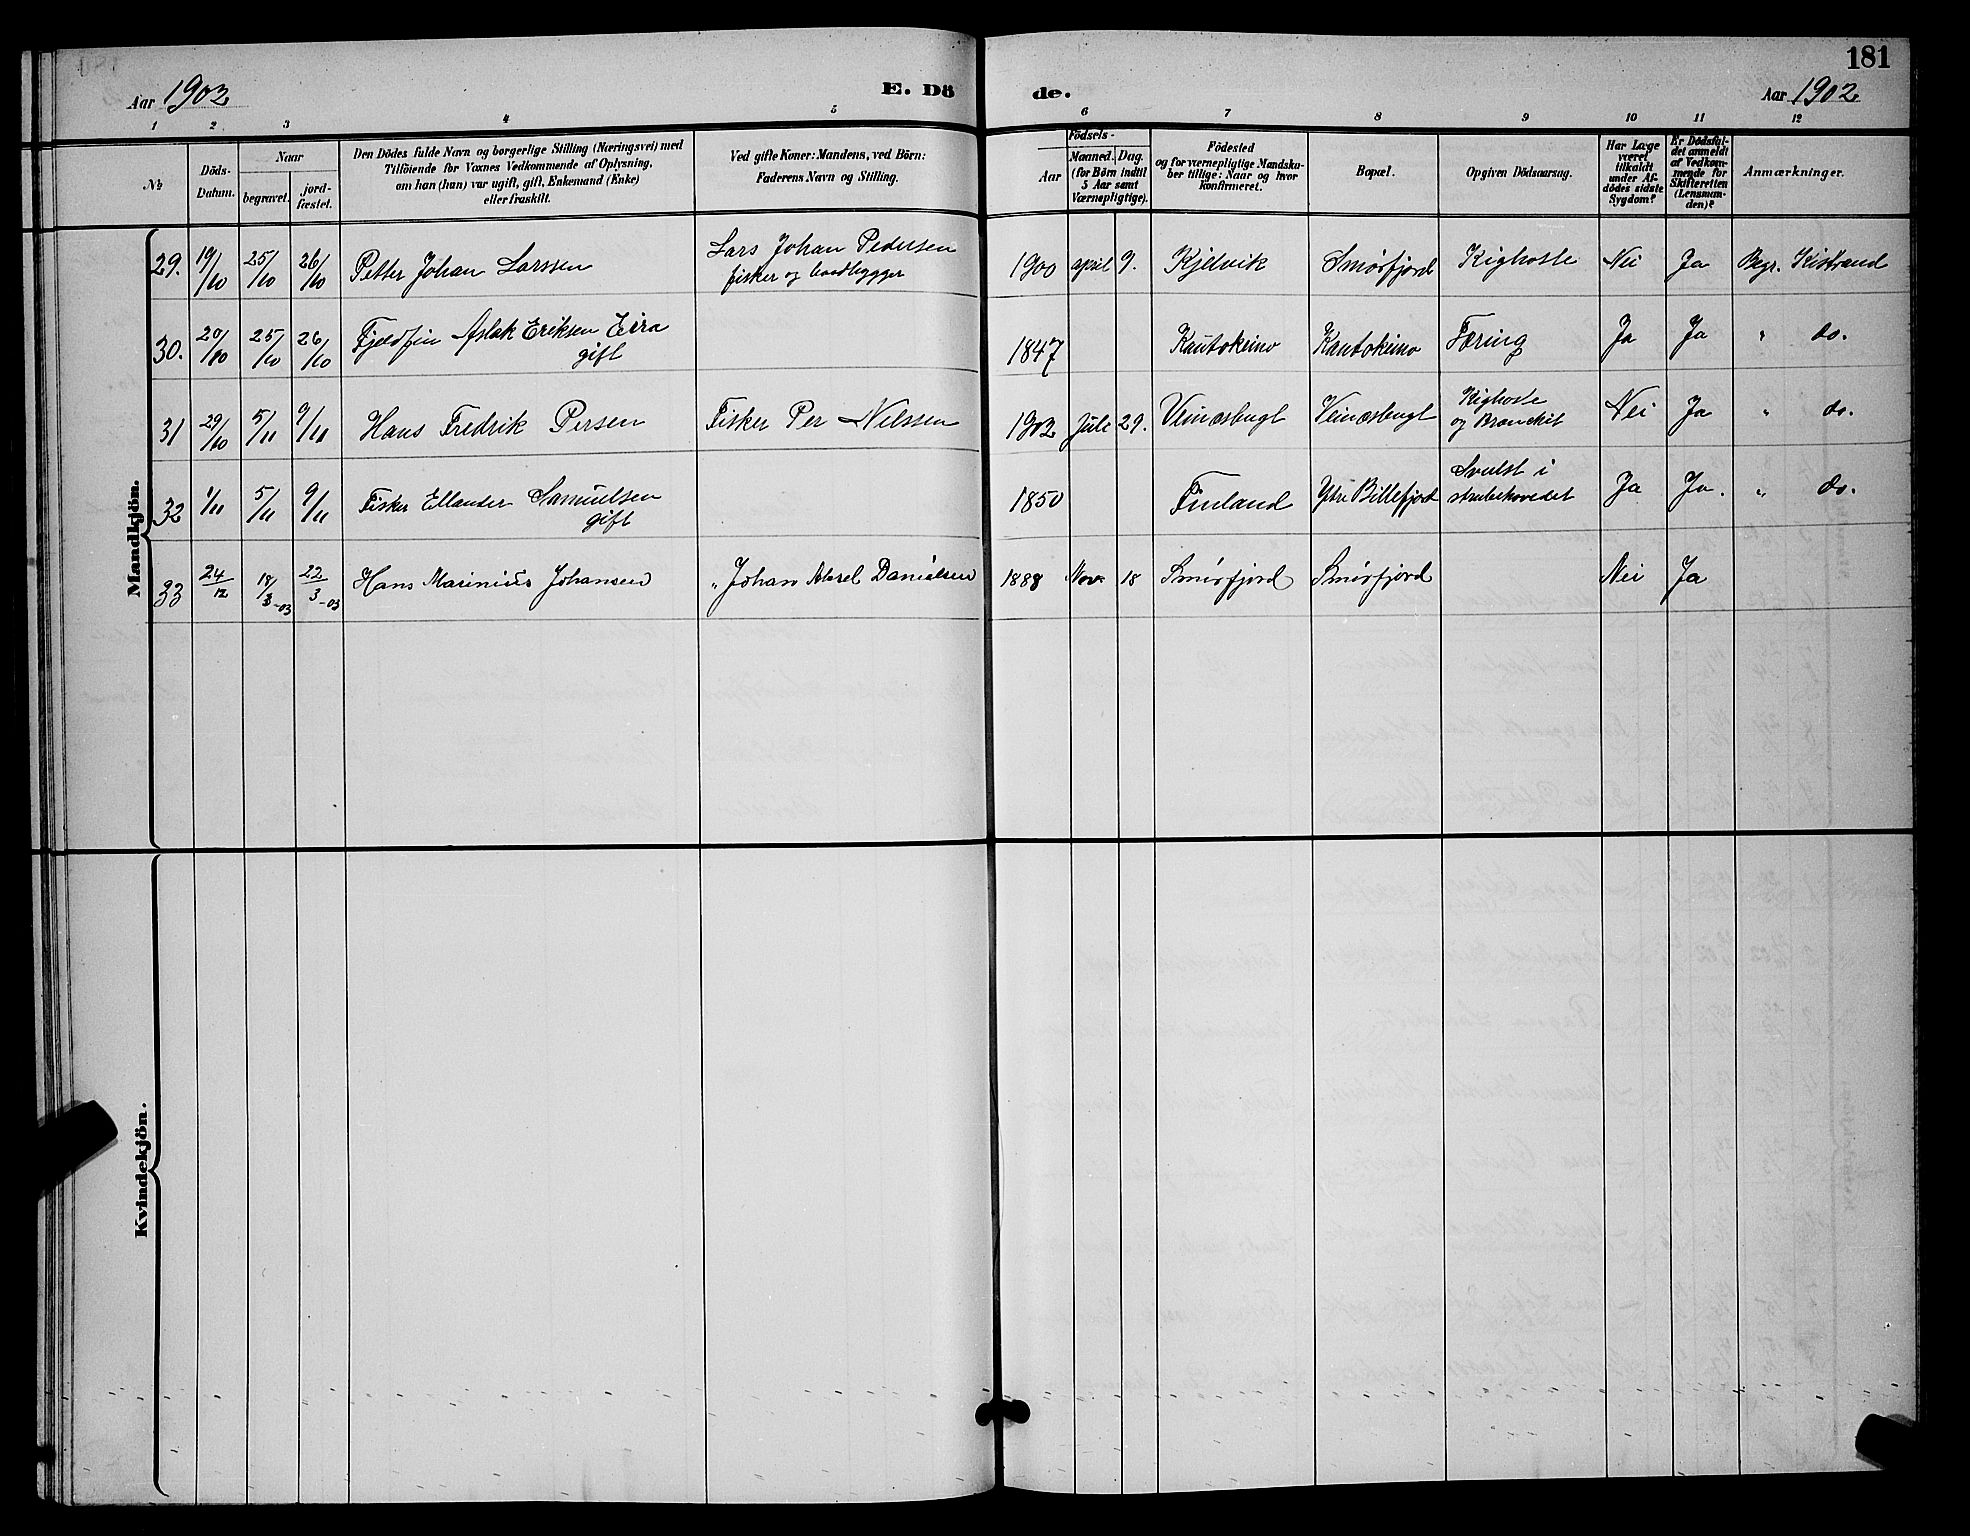 181
Aar 1902
E. Dö
de.
Aar 1902
1 2 3 4 5 6 7 8 9 10 11 12
№
Döds-
Datum.
Naar
begravet.
jord-
fæstet.
Den Dödes fulde Navn og borgerlige Stilling (Næringsvei) med
Tilföiende for Voxnes Vedkommende af Oplysning,
om han (hun) var ugift, gift, Enkemand (Enke)
eller fraskilt.
Ved gifte Koner: Mandens, ved Börn:
Faderens Navn og Stilling.
Födsels-
Aar
Maaned.
Dag.
(for Börn indtil
5 Aar samt
Værnepligtige).
Födested
og for værnepligtige Mandska-
ber tillige: Naar og hvor
konfirmeret.
Bopæl.
Opgiven Dödsaarsag.
Har Læge
været
tilkaldt
under Af-
dödes sidste
Sygdom?
Er Dödsfal-
det anmeldt
af Vedkom-
mende for
Skifteretten
(Lensman-
den)?
Anmærkninger.
Mandkjön.
29. 19/10 25/10 26/10 Petter Johan Larssen Lars Johan Pedersen
fisker og baadbygger 1900 april 9. Kjelvik Smörfjord Kighoste Nei Ja Begr. Kistrand
30. 20/10 25/10 26/10 Fjeldfin Aslak Eriksen Eira
gift 1847 Kautokeino Kautokeino Tæring Ja Ja " do.
31 29/10 5/11 9/11 Hans Fredrik Persen Fisker Per Nilssen 1902 Juli 29. Veinæsbugt Veinæsbugt Kighoste
og Bronchit Nei Ja " do.
32 1/11 5/11 9/11 Fisker Ellander Samuelsen
gift 1850 Finland Ytre Billefjord Svulst i
strubehovedet Ja Ja. " do.
33 24/12 18/3-03 22/3-03 Hans Marinius Johansen " Johan Aksel Danielsen 1888 Nov. 18 Smörfjord Smörfjord Nei Ja
Kvindekjön.